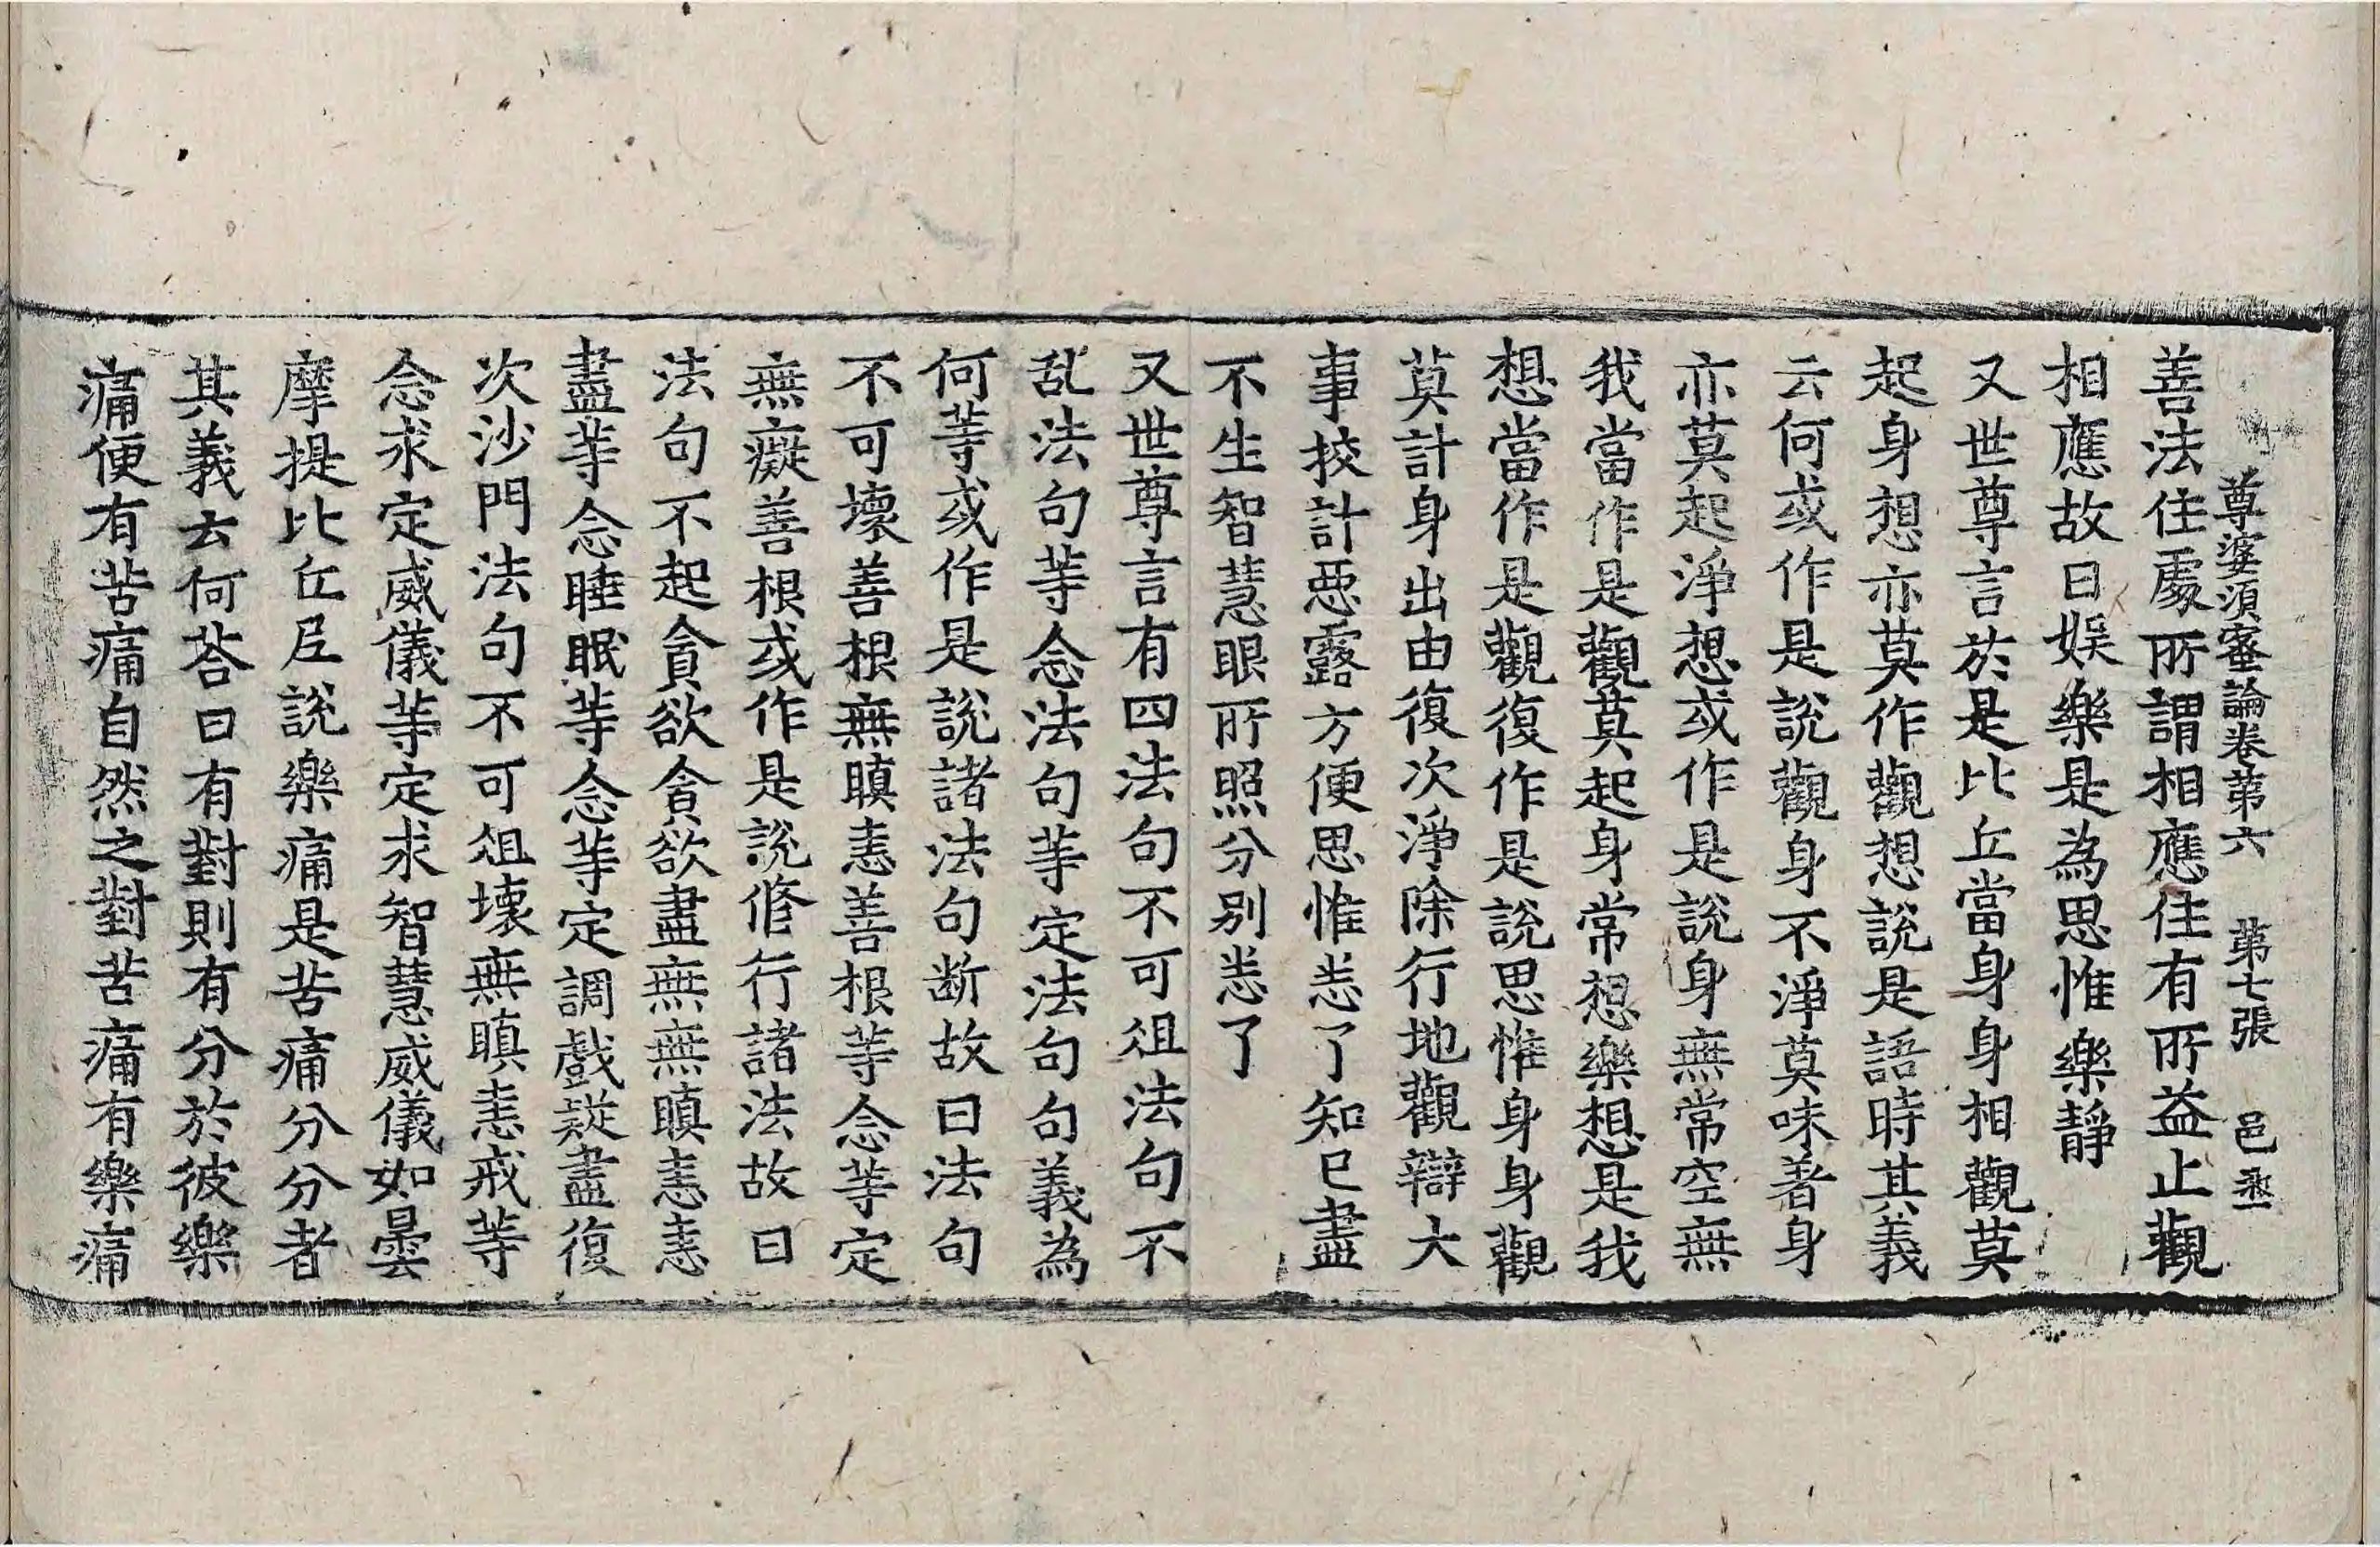 尊婆須蜜論卷第六 第七張 邑
善法住處所謂相應住有所益止觀
相應故曰娛樂是為思惟樂靜
又世尊言於是比丘當身身相觀莫
起身想亦莫作觀想說是語時其義
云何或作是說觀身不淨莫味著身
亦莫起淨想或作是說身無常空無
我當作是觀莫起身常想樂想是我
想當作是觀復作是說思惟身身觀
莫計身出由復次淨除行地觀辯大
事挍計惡露方便思惟恙了知已盡
不生智慧眼所照分別恙了
又世尊言有四法句不可俎法句不
乱法句等念法句等定法句句義為
何等或作是說諸法句断故曰法句
不可壞善根無瞋恚善根等念等定
無癡善根或作是說修行諸法故曰
法句不起貪欲貪欲盡無無瞋恚恚
盡等念睡眠等念等定調戲疑盡復
次沙門法句不可俎壞無瞋恚戒等
念求定威儀等定求智慧威儀如曇
摩提比丘尼說樂痛是苦痛分分者
其義云何荅曰有對則有分於彼樂
痛便有苦痛自然之對苦痛有樂痛